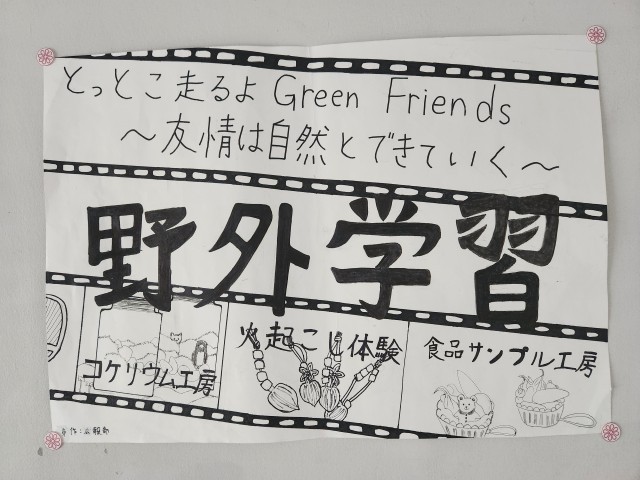 とっとこ走るよ Green Friends
〜友情は自然とできていく〜
野外学習
コケリウム工房
火起こし体験
食品サンプル工房